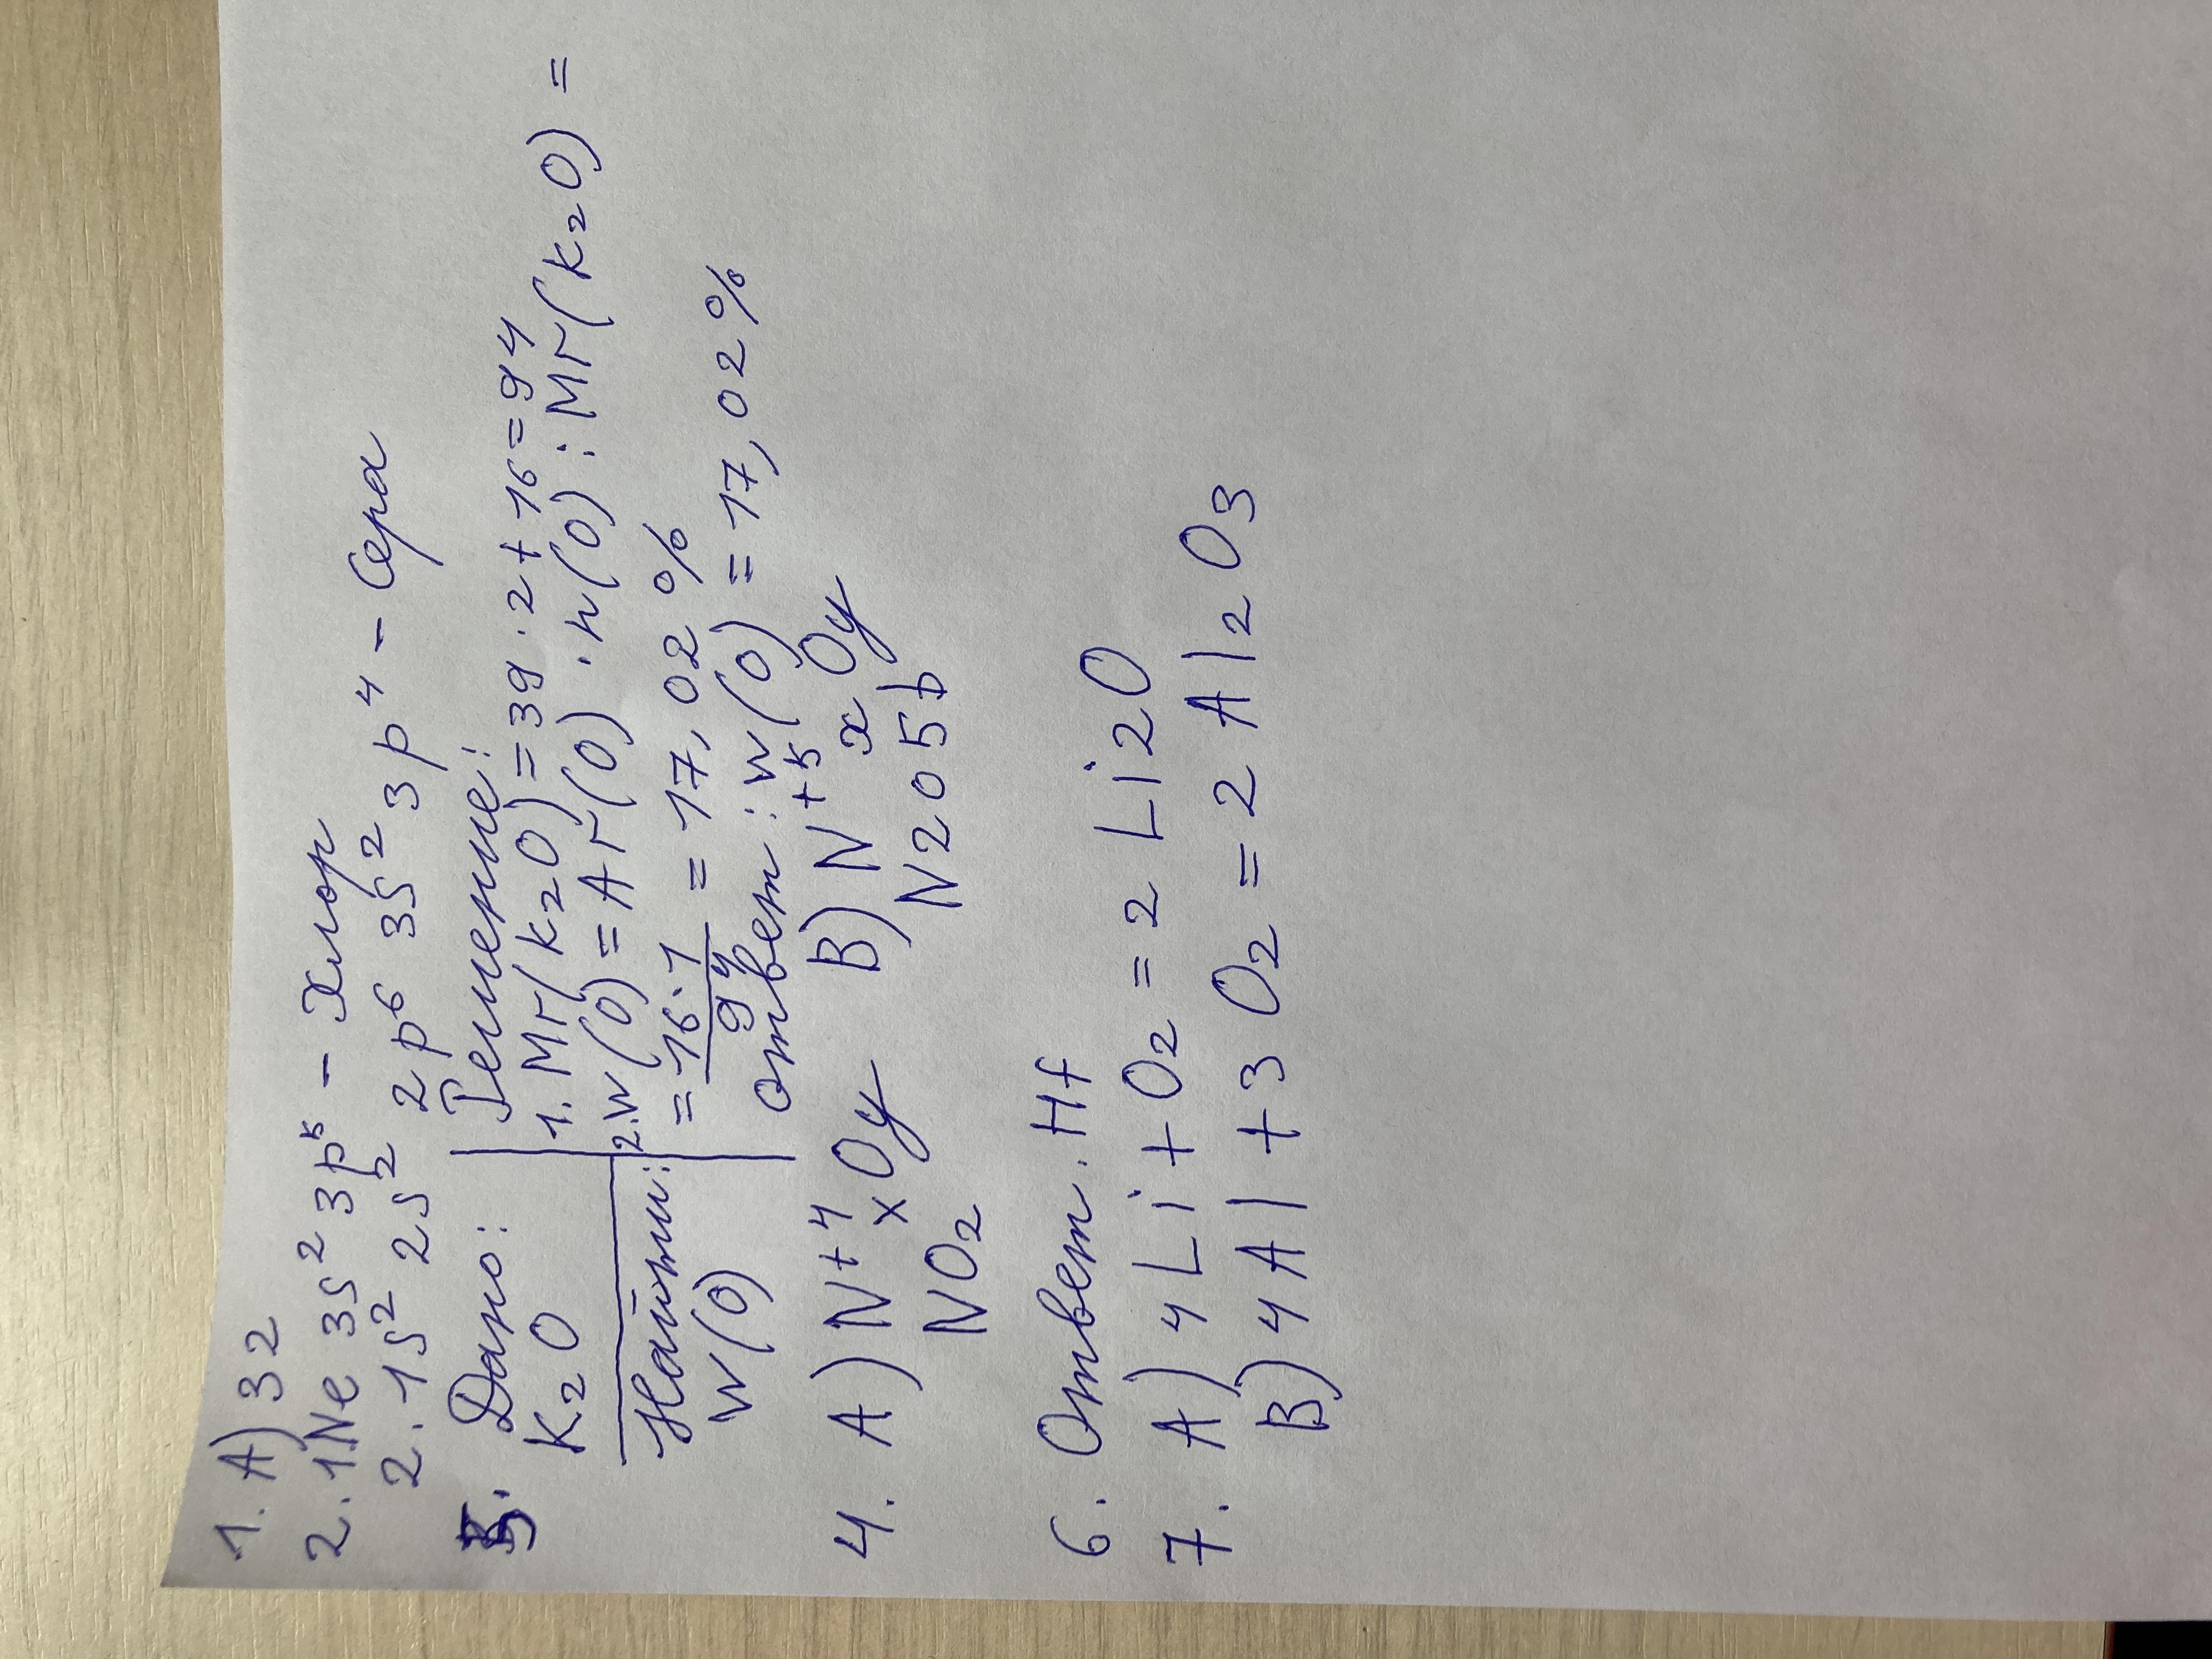 1. A) 32
2. 1Ne 3s² 3p⁵ - Хлор
2. 1s² 2s² 2p⁶ 3s² 3p⁴ - Сера
3. Дано:
K₂O
Найти:
w(O)
Решение:
1. Mr(K₂O) = 39 · 2 + 16 = 94
2. w(O) = Ar(O) · n(O) : Mr(K₂O) =
= 16·1/94 = 17,02 %
Ответ: w(O) = 17,02%
4. A) N⁺⁴ₓOy B) N⁺⁵ₓOy
NO₂ N2O5b
6. Ответ. Hf
7. A) 4Li + O₂ = 2 Li2O
B) 4Al + 3O₂ = 2 Al₂O₃